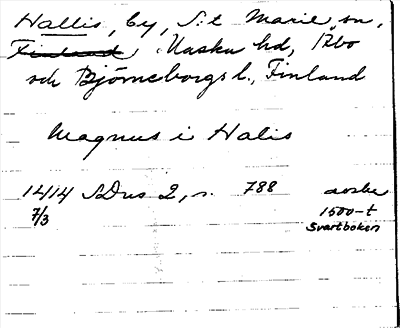 Hallis, by, S:t Marie sn,
Finland, Masku hd, Åbo
och Björneborgs l., Finland
Magnus i Halis
1414 SDns 2, s. 788 avskr
7/3 1500-t
Svartboken